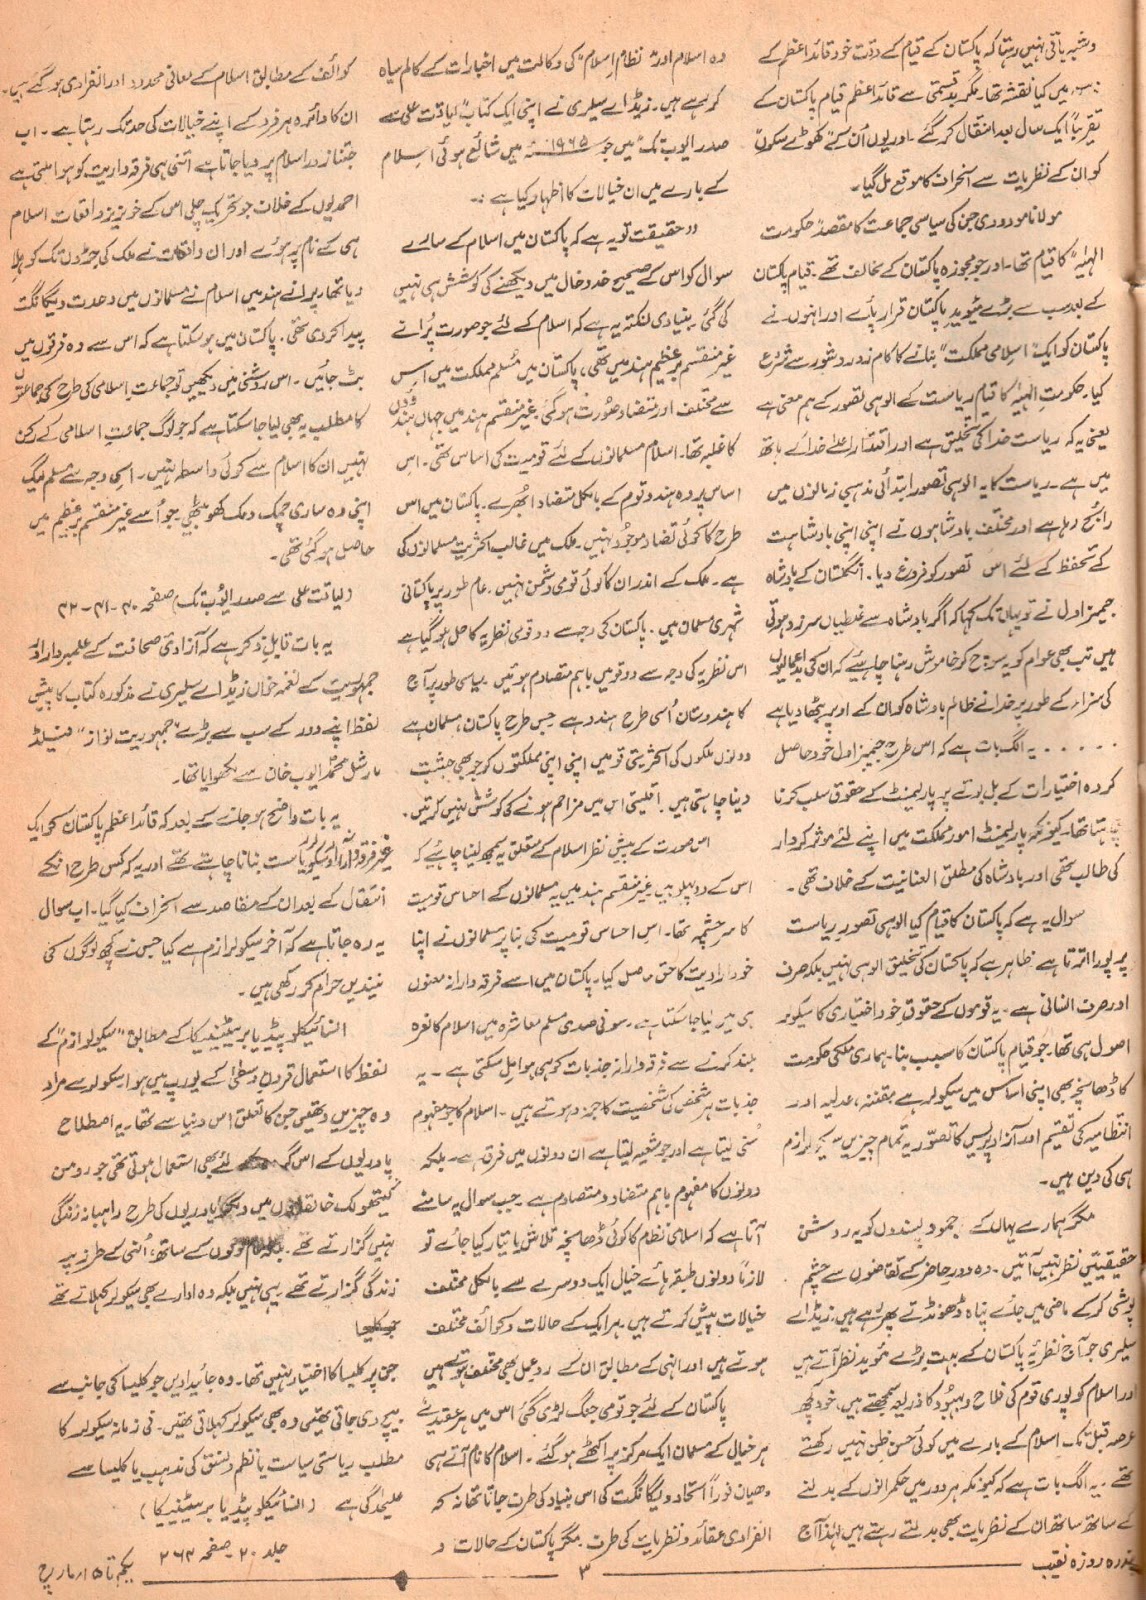 وشبہ باقی نہیں رہتا کہ پاکستان کے قیام کے وقت خود قائداعظم کے
میں کیا نقشہ تھا۔ مگر بدقسمتی سے قائداعظم قیام پاکستان کے
تقریباً ایک سال بعد انتقال کر گئے۔ اور یوں اُن کے کھوٹے سکوں
کو ان کے نظریات سے انحراف کا موقع مل گیا۔
مولانا مودودی جن کی سیاسی جماعت کا مقصد "حکومت
الٰہیہ" کا قیام تھا۔ اور جو مجوزہ پاکستان کے مخالف تھے۔ قیام پاکستان
کے بعد سب سے بڑے مؤید پاکستان قرار پائے اور انہوں نے
پاکستان کو ایک "اسلامی مملکت" بنانے کا کام زور و شور سے شروع
کیا۔ حکومتِ الٰہیہ کا قیام ریاست کے الوہی تصور کے ہم معنی ہے
یعنی یہ کہ ریاست خدا کی تخلیق ہے اور اقتدار اعلیٰ خدا کے ہاتھ
میں ہے۔ ریاست کا یہ الوہی تصور ابتدائی مذہبی زمانوں میں
رائج رہا ہے اور مختلف بادشاہوں نے اپنی اپنی بادشاہت
کے تحفظ کے لئے اس تصور کو فروغ دیا۔ انگلستان کے بادشاہ
جیمز اول نے تو یہاں تک کہا کہ اگر بادشاہ سے غلطیاں سرزد ہوتی
ہیں تب بھی عوام کو یہ سوچ کر خاموش رہنا چاہیئے کہ ان کی بداعمالیوں
کی سزا کے طور پر خدا نے ظالم بادشاہ کو ان کے اوپر بٹھا دیا ہے
. . . . . . یہ الگ بات ہے کہ اس طرح جیمز اول خود حاصل
کردہ اختیارات کے بل بوتے پر پارلیمنٹ کے حقوق سلب کرنا
چاہتا تھا۔ کیونکہ پارلیمنٹ امور مملکت میں اپنے لئے موثر کردار
کی طالب تھی اور بادشاہ کی مطلق العنانیت کے خلاف تھی۔
سوال یہ ہے کہ پاکستان کا قیام کیا الوہی تصورِ ریاست
پر پورا اترتا ہے ظاہر ہے کہ پاکستان کی تخلیق الوہی نہیں بلکہ صرف
اور صرف انسانی ہے۔ یہ قوموں کے حقوقِ خود اختیاری کا سیکولر
اصول ہی تھا۔ جو قیام پاکستان کا سبب بنا۔ ہماری ملکی حکومت
کا ڈھانچہ بھی اپنی اساس میں سیکولر ہے مقننہ، عدلیہ اور
انتظامیہ کی تقسیم اور آزاد پریس کا تصور یہ تمام چیزیں سیکولرازم
ہی کی دین ہیں۔
مگر ہمارے یہاں کے جمود پسندوں کو یہ روشن
حقیقتیں نظر نہیں آتیں۔ وہ دور حاضر کے تقاضوں سے چشم
پوشی کر کے ماضی میں جائے پناہ ڈھونڈتے پھر رہے ہیں۔ زیڈ اے
سلیری جو آج نظریۂ پاکستان کے بہت بڑے مؤید نظر آتے ہیں
اور اسلام کو پوری قوم کی فلاح و بہبود کا ذریعہ سمجھتے ہیں، خود کچھ
عرصہ قبل تک اسلام کے بارے میں کوئی حسن ظن نہیں رکھتے
تھے۔ یہ الگ بات ہے کہ کیونکہ ہر دور میں حکمرانوں کے بدلنے
کے ساتھ ساتھ ان کے نظریات بھی بدلتے رہتے ہیں لہٰذا آج
وہ اسلام اور "نظام اسلام" کی وکالت میں اخبارات کے کالم سیاہ
کر رہے ہیں۔ زیڈ اے سلیری نے اپنی ایک کتاب "لیاقت علی سے
صدر ایوب تک" میں جو ۱۹۶۵ء میں شائع ہوئی اسلام
کے بارے میں ان خیالات کا اظہار کیا ہے :۔
"حقیقت تو یہ ہے کہ پاکستان میں اسلام کے سارے
سوال کو اس کے صحیح خدوخال میں دیکھنے کی کوشش ہی نہیں
کی گئی۔ بنیادی نکتہ یہ ہے کہ اسلام کے لئے جو صورت پُرانے
غیر منقسم برعظیم ہند میں تھی، پاکستان میں مُسلم مملکت میں اس
سے مختلف اور متضاد صورت ہو گئی۔ غیر منقسم ہند میں جہاں ہندوؤں
کا غلبہ تھا۔ اسلام مسلمانوں کے لئے قومیت کی اساس تھی۔ اس
اساس پر وہ ہندو قوم کے بالکل متضاد اُبھرے۔ پاکستان میں اس
طرح کا کوئی تضاد موجود نہیں۔ ملک میں غالب اکثریت مسلمانوں کی
ہے۔ ملک کے اندر ان کا کوئی قومی دشمن نہیں۔ عام طور پر پاکستانی
شہری مسلمان ہیں۔ پاکستان کی وجہ سے دو قومی نظریہ کا حل ہو گیا ہے
اس نظریہ کی وجہ سے دو قومیں باہم متصادم ہوئیں۔ سیاسی طور پر آج
کا ہندوستان اُسی طرح ہندو ہے جس طرح پاکستان مسلمان ہے
دونوں ملکوں کی اکثریتی قومیں اپنی اپنی مملکتوں کو جو بھی حیثیت
دینا چاہتی ہیں۔ اقلیتی اس میں مزاحم ہونے کی کوشش نہیں کرتیں۔
اس صورت کے پیش نظر اسلام کے متعلق یہ سمجھ لینا چاہیے کہ
اس کے دو پہلو ہیں غیر منقسم ہند میں یہ مسلمانوں کے احساس قومیت
کا سرچشمہ تھا۔ اس احساس قومیت کی بنا پر مسلمانوں نے اپنا
خود ارادیت کا حق حاصل کیا۔ پاکستان میں اسے فرقہ دارانہ معنوں
ہی میں لیا جا سکتا ہے۔ سو فی صدی مسلم معاشرہ میں اسلام کا نعرہ
بلند کرنے سے فرقہ دارانہ جذبات کو ہی ہوا مل سکتی ہے۔ یہ
جذبات ہر شخص کی شخصیت کا جزو ہوتے ہیں۔ اسلام کا جو مفہوم
سُنی لیتا ہے اور جو شیعہ لیتا ہے ان دونوں میں فرق ہے۔ بلکہ
دونوں کا مفہوم باہم متضاد و متصادم ہے۔ جب سوال یہ سامنے
آتا ہے کہ اسلامی نظام کا کوئی ڈھانچہ تلاش یا تیار کیا جائے تو
لازماً دونوں طبقہ ہائے خیال ایک دوسرے سے بالکل مختلف
خیالات پیش کرتے ہیں۔ ہر ایک کے حالات و کوائف مختلف
ہوتے ہیں اور انہی کے مطابق ان کے ردعمل بھی مختلف ہوتے ہیں
پاکستان کے لئے جو قومی جنگ لڑی گئی اس میں ہر عقیدے
ہر خیال کے مسلمان ایک مرکز پر اکٹھے ہو گئے۔ اسلام کا نام آتے ہی
دھیان فوراً اتحاد و یگانگت کی اس بنیاد کی طرف جاتا تھا نہ کہ
انفرادی عقائد و نظریات کی طرف۔ مگر پاکستان کے حالات و
کوائف کے مطابق اسلام کے معانی محدود اور انفرادی ہو گئے ہیں۔
ان کا دائرہ ہر فرد کے اپنے خیالات کی حد تک رہتا ہے۔ اب
جتنا زور اسلام پر دیا جاتا ہے اتنی ہی فرقہ داریت کو ہوا ملتی ہے
احمدیوں کے خلاف جو تحریک چلی اس کے خونریز واقعات اسلام
ہی کے نام پر ہوئے اور ان واقعات نے ملک کی جڑوں تک کو ہلا
دیا تھا۔ پرانے ہند میں اسلام نے مسلمانوں میں وحدت و یگانگت
پیدا کر دی تھی۔ پاکستان میں ہو سکتا ہے کہ اس سے وہ فرقوں میں
بٹ جائیں۔ اس روشنی میں دیکھیں تو جماعت اسلامی کی طرح کی جماعتوں
کا مطلب یہ بھی لیا جا سکتا ہے کہ جو لوگ جماعت اسلامی کے رکن
نہیں ان کا اسلام سے کوئی واسطہ نہیں۔ اسی وجہ سے مسلم لیگ
اپنی وہ ساری چمک دمک کھو بیٹھی جو اُسے غیر منقسم برعظیم میں
حاصل ہو گئی تھی۔
(لیاقت علی سے صدر ایوب تک) صفحہ ۴۰-۴۱-۴۲
یہ بات قابل ذکر ہے کہ آزادیٔ صحافت کے علمبردار اور
جمہوریت کے نغمہ خواں زیڈ اے سلیری نے مذکورہ کتاب کا پیش
لفظ اپنے دور کے سب سے بڑے "جمہوریت نواز" فیلڈ
مارشل محمد ایوب خان سے لکھوایا تھا۔
یہ بات واضح ہو جانے کے بعد کہ قائداعظم پاکستان کو ایک
غیر فرقہ دارانہ اور سیکولر ریاست بنانا چاہتے تھے اور یہ کہ کس طرح انکے
انتقال کے بعد ان کے مقاصد سے انحراف کیا گیا۔ اب سوال
یہ رہ جاتا ہے کہ آخر سیکولرازم ہے کیا جس نے کچھ لوگوں کی
نیندیں حرام کر رکھی ہیں۔
انسائیکلو پیڈیا بریٹینیکا کے مطابق "سیکولرازم" کے
لفظ کا استعمال قرون وسطیٰ کے یورپ میں ہوا سیکولر سے مراد
وہ چیزیں تھیں جن کا تعلق اس دنیا سے تھا۔ یہ اصطلاح
پادریوں کے اس گروہ کے لئے بھی استعمال ہوتی تھی جو رومن
کیتھولک خانقاہوں میں دیگر پادریوں کی طرح راہبانہ زندگی
نہیں گزارتے تھے۔ بلکہ عام لوگوں کے ساتھ، اُنہی کے طرز پر
زندگی گزارتے تھے۔ یہی نہیں بلکہ وہ ادارے بھی سیکولر کہلاتے تھے
جن پر کلیسا کا اختیار نہیں تھا۔ وہ جائیدادیں جو کلیسا کی جانب سے
بیچ دی جاتی تھیں وہ بھی سیکولر کہلاتی تھیں۔ فی زمانہ سیکولر کا
مطلب ریاستی سیاست یا نظم و نسق کی مذہب یا کلیسا سے
علیحدگی ہے (انسائیکلو پیڈیا بریٹینیکا)
جلد ۲۰۔ صفحہ ۲۶۳
پندرہ روزہ نقیب
۳
یکم تا ۱۵ مارچ